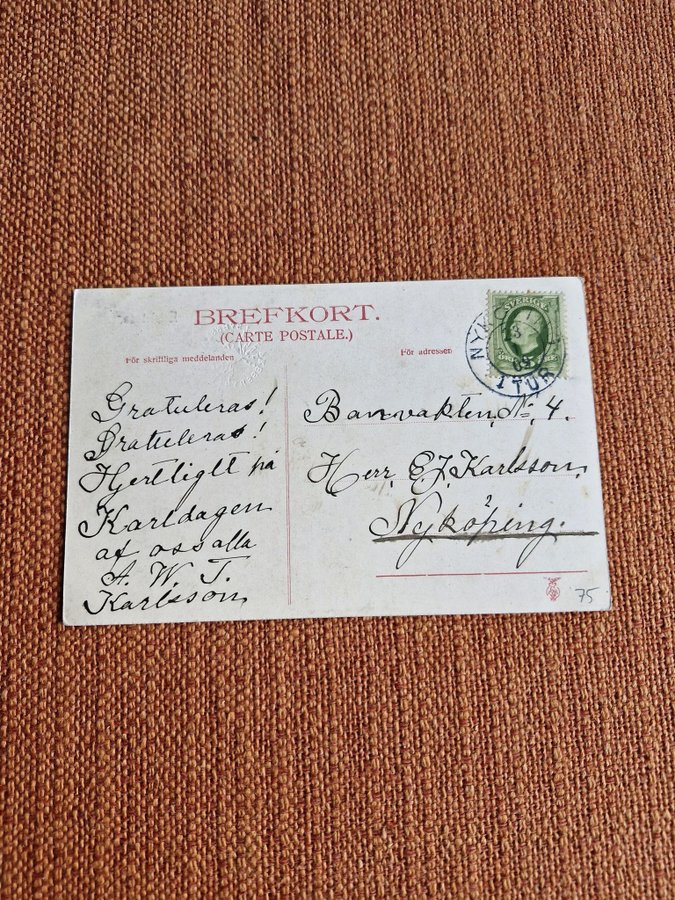 BREFKORT.
(CARTE POSTALE.)
För skriftliga meddelanden
För adressen
SVERIGE
NYKÖ
09
1 TUR
Gratuleras!
Gratuleras!
Hjertligtt på
Karldagen
af oss alla
A. W. T.
Karlsson
Banvakten, No 4.
Herr E. J. Karlsson,
Nyköping.
75